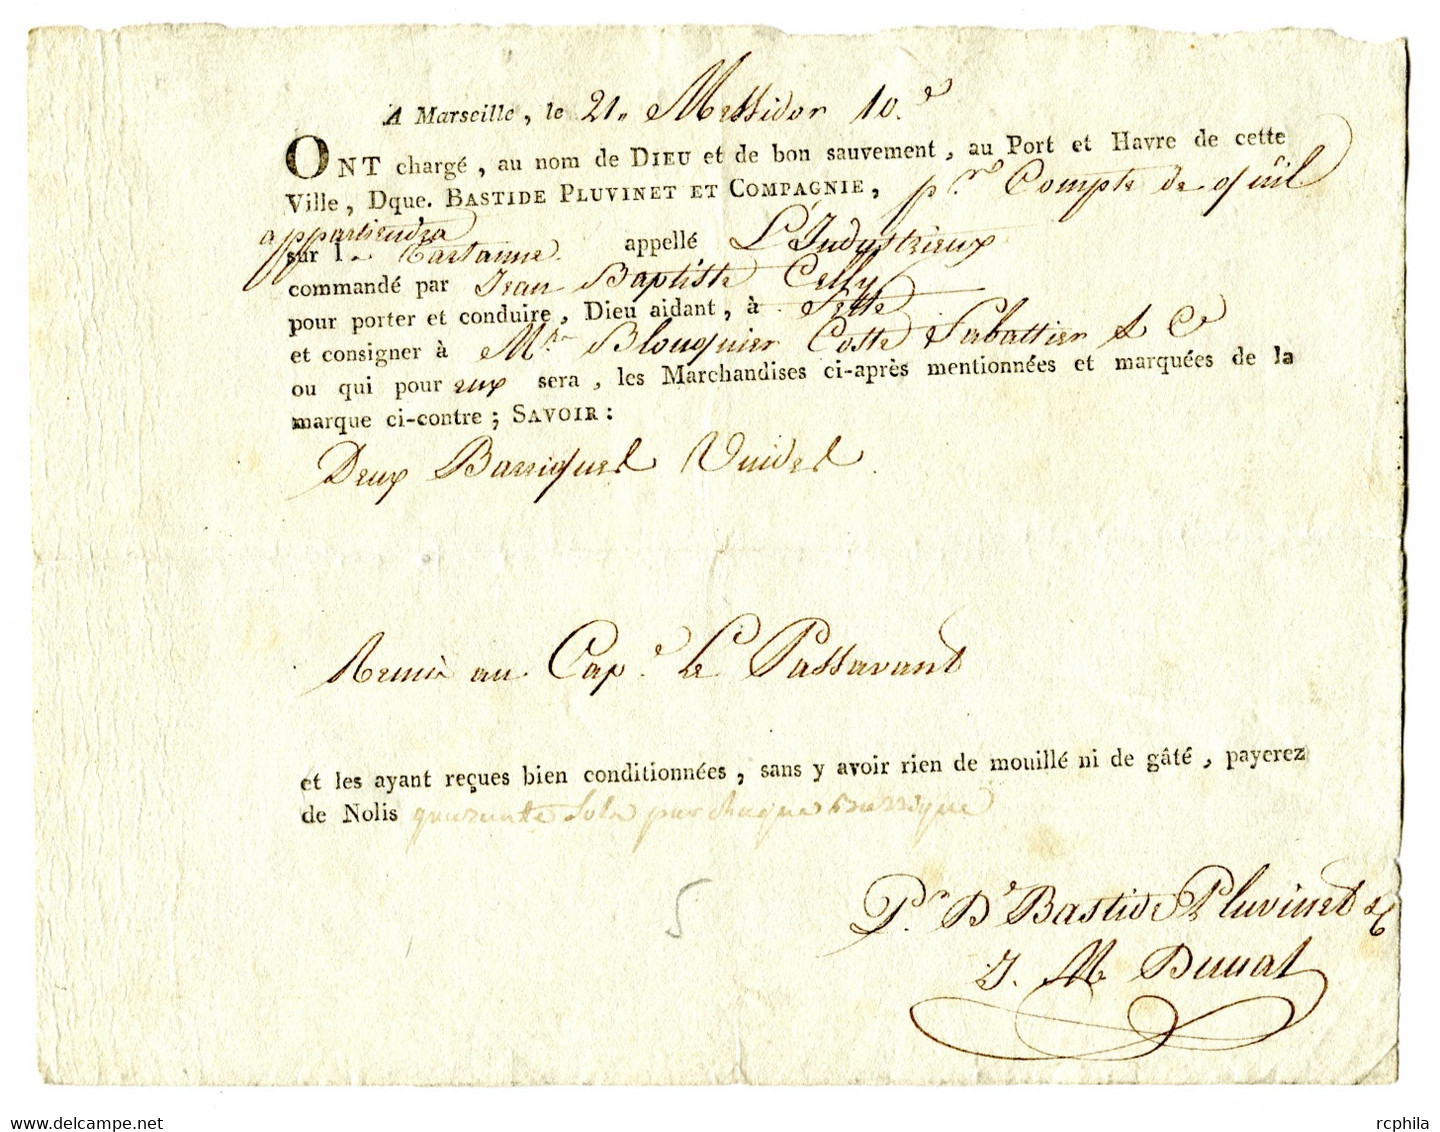 A Marseille, le 21 Messidor 10.e
ONT chargé, au nom de DIEU et de bon sauvement, au Port et Havre de cette
Ville, Dque. BASTIDE PLUVINET ET COMPAGNIE, pr. Compte de qu'il
appartiendra
sur la Tartanne appellé L'Industrieux
commandé par Jean Baptiste Celly
pour porter et conduire, Dieu aidant, à Sette
et consigner à Mrs. Blouquier Coste Sabattier & Ce
ou qui pour eux sera, les Marchandises ci-après mentionnées et marquées de la
marque ci-contre; SAVOIR:
Deux Barriques Vuides.
Remis au Cape. le Passavant
et les ayant reçues bien conditionnées, sans y avoir rien de mouillé ni de gâté, payerez
de Nolis quarante sols par chaque barrique
5
Pr. De Bastide Pluvinet & C
J. M
rcphila